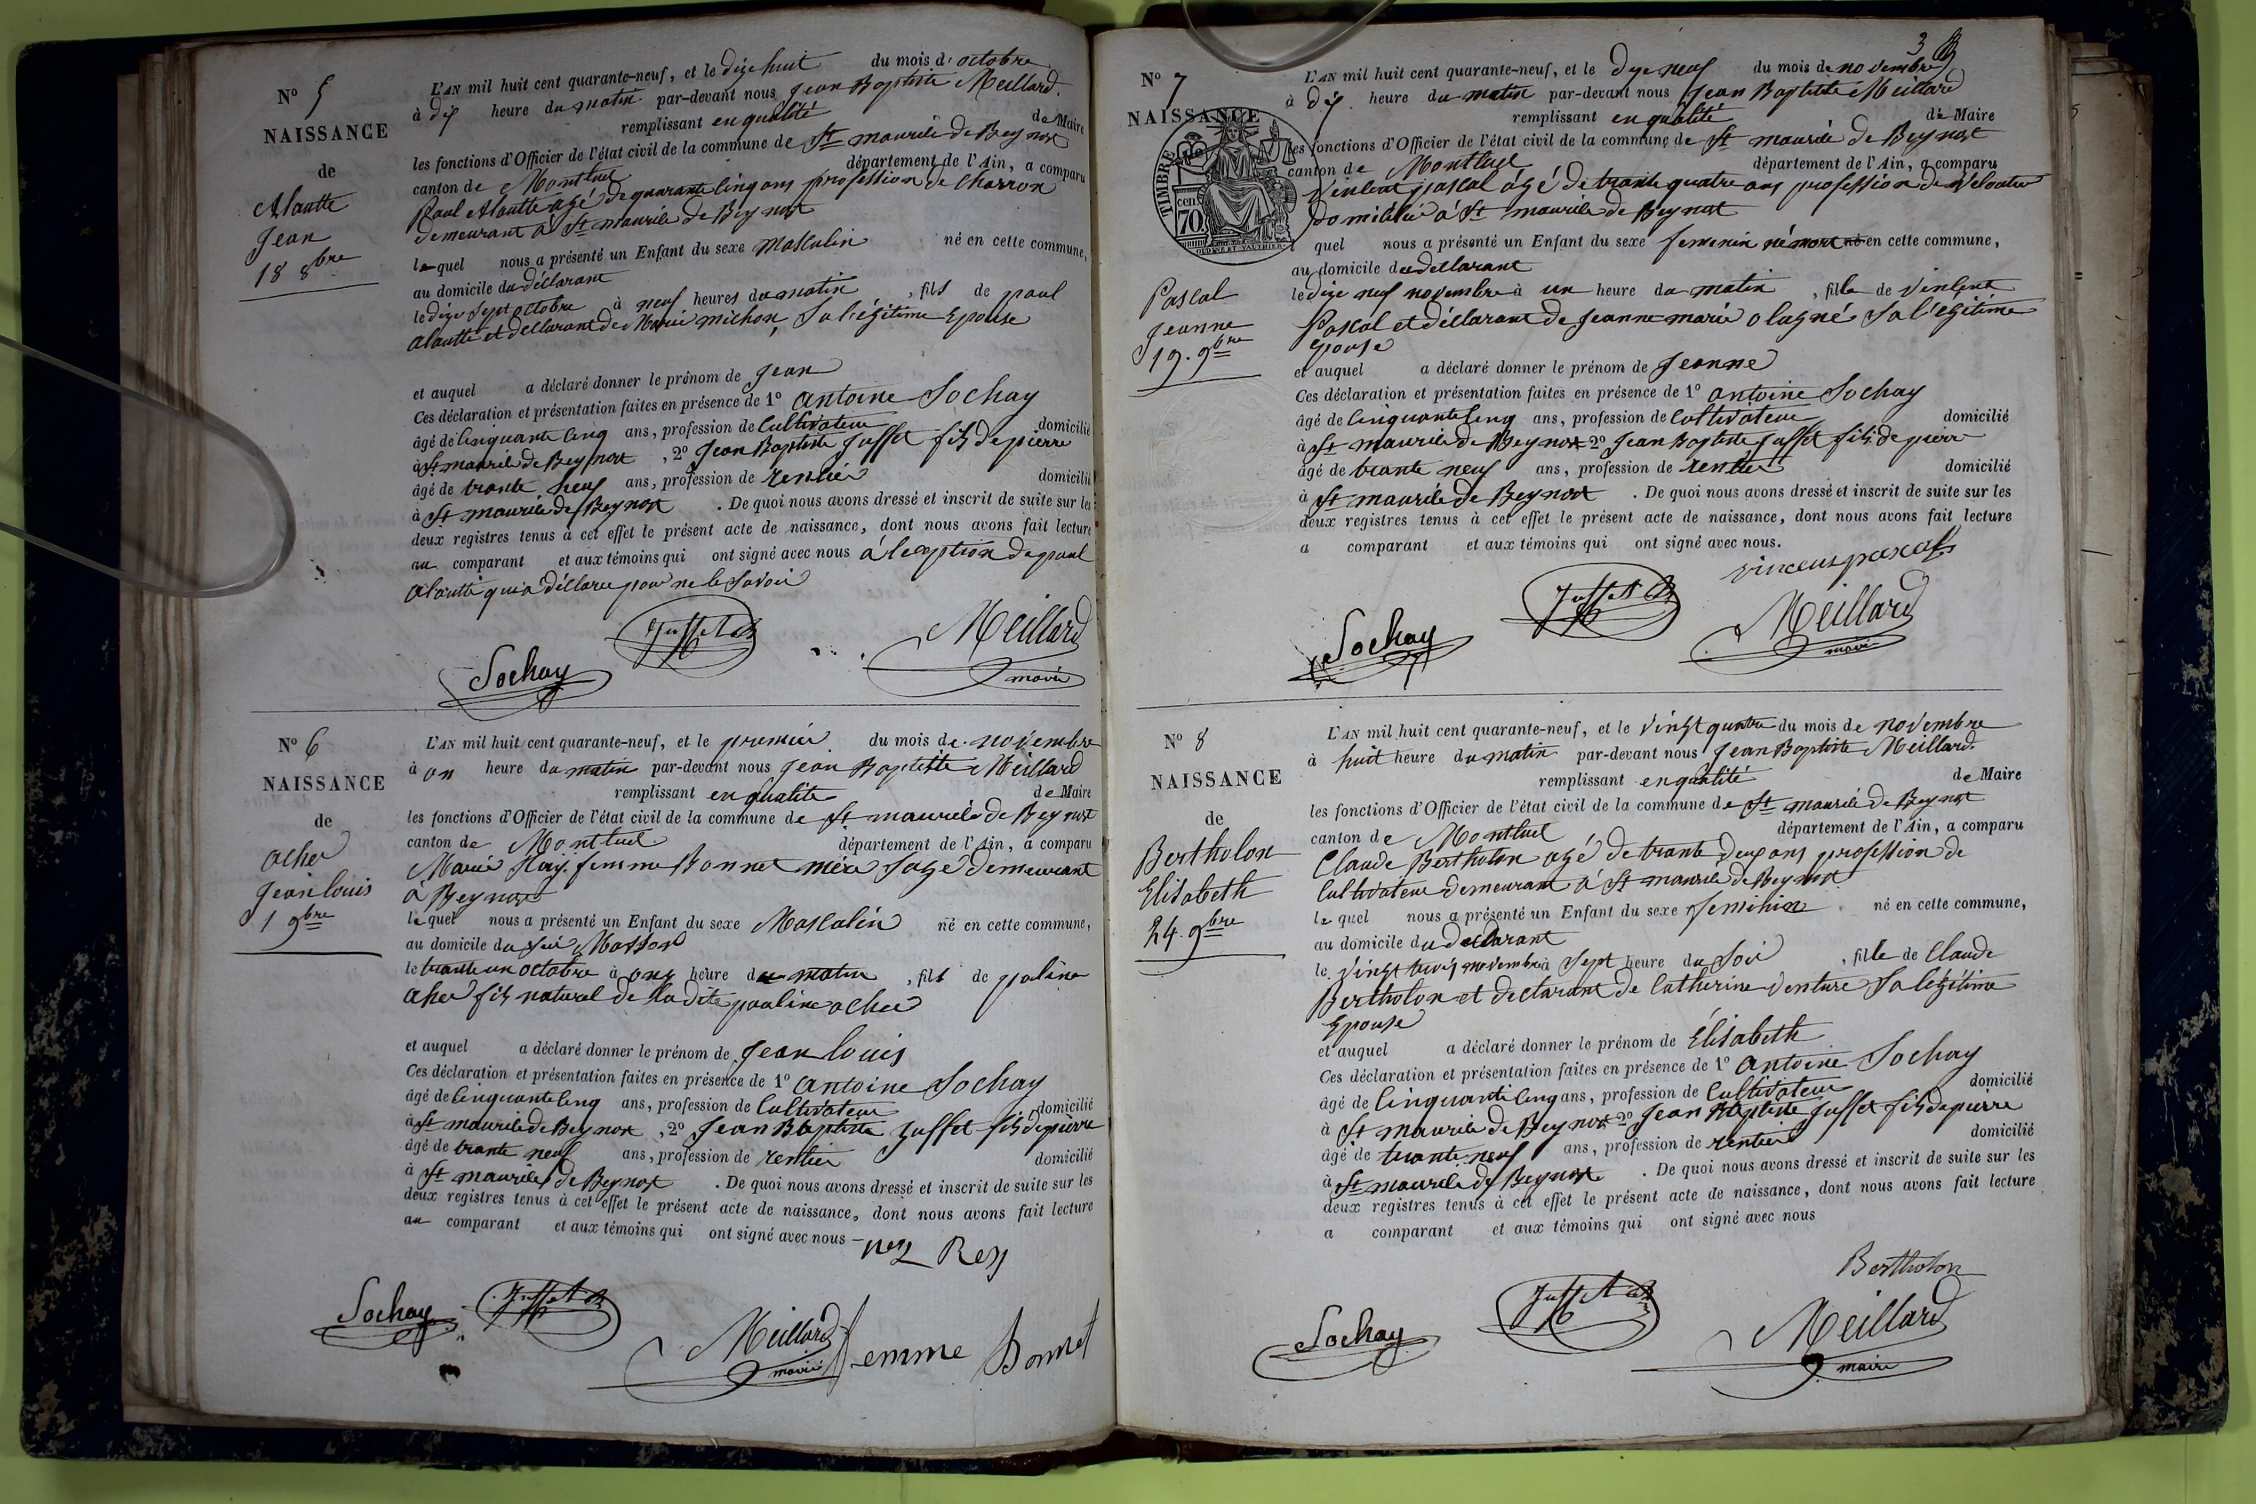 N° 5
NAISSANCE
de
Alautte
Jean
18 8bre
L'AN mil huit cent quarante-neuf, et le dize huit du mois d'octobre
à dix heure du matin par-devant nous Jean Baptiste Meillard.
remplissant en qualité de Maire
les fonctions d'Officier de l'état civil de la commune de St maurice de Beynost
canton de Montluel département de l'Ain, a comparu
Paul Alautte agé de quarante cinq ans profession de Charron
demeurant à St maurice de Beynost
lequel nous a présenté un Enfant du sexe masculin né en cette commune,
au domicile du déclarant
le dize sept octobre à neuf heures du matin, fils de paul
alautte et déclarant de Marie michon, Sa légitime Epouse
et auquel a déclaré donner le prénom de Jean
Ces déclaration et présentation faites en présence de 1° antoine Sochay
âgé de cinquante cinq ans, profession de Cultivateur domicilié
à St maurice de Beynost, 2° Jean Baptiste Juffet fils de pierre
âgé de trante neuf ans, profession de rentier domicilié
à St maurice de Beynost. De quoi nous avons dressé et inscrit de suite sur les
deux registres tenus à cet effet le présent acte de naissance, dont nous avons fait lecture
au comparant et aux témoins qui ont signé avec nous à l'exeption de paul
alautte qui a déclaré pour ne le Savoir
Sochay Juffet Meillard
maire
N° 6
NAISSANCE
de
acher
Jean louis
1 9bre
L'AN mil huit cent quarante-neuf, et le premier du mois de novembre
à on heure du matin par-devant nous Jean Baptiste Meillard
remplissant en qualité de Maire
les fonctions d'Officier de l'état civil de la commune de St maurice de Beynost
canton de Montluel département de l'Ain, a comparu
Marie Ray femme Bonnet mère Sage demeurant
à Beynost
lequel nous a présenté un Enfant du sexe Masculin né en cette commune,
au domicile du sieur Masson
le trante un octobre à onze heure du matin, fils de poline
acher fils naturel de la dite pauline acher
et auquel a déclaré donner le prénom de Jean louis
Ces déclaration et présentation faites en présence de 1° antoine Sochay
âgé de cinquante cinq ans, profession de Cultivateur domicilié
à St maurice de Beynost, 2° Jean Baptiste Juffet fils de pierre
âgé de trante neuf ans, profession de rentier domicilié
à St maurice de Beynost. De quoi nous avons dressé et inscrit de suite sur les
deux registres tenus à cet effet le présent acte de naissance, dont nous avons fait lecture
au comparant et aux témoins qui ont signé avec nous
Rey
Sochay Juffet Meillard femme Bonnet
maire
3
N° 7
NAISSANCE
de
TIMBRE
70
cen
Pascal
Jeanne
19. 9bre
L'AN mil huit cent quarante-neuf, et le dize neuf du mois de novembre
à dix heure du matin par-devant nous Jean Baptiste Meillard
remplissant en qualité de Maire
les fonctions d'Officier de l'état civil de la commune de St maurice de Beynost
canton de Montluel département de l'Ain, a comparu
Vincent pascal âgé de trante quatre ans profession de
domicilié à St maurice de Beynost
quel nous a présenté un Enfant du sexe femenin né en cette commune,
au domicile du declarant
le dize neuf novembre à un heure du matin, fille de Vincent
Pascal et déclarant de Jeanne marie olagné Sa légitime
Epouse
et auquel a déclaré donner le prénom de Jeanne
Ces déclaration et présentation faites en présence de 1° antoine Sochay
âgé de cinquante cinq ans, profession de Cultivateur domicilié
à St maurice de Beynost 2° Jean Baptiste Juffet fils de pierre
âgé de trante neuf ans, profession de rentier domicilié
à St maurice de Beynost. De quoi nous avons dressé et inscrit de suite sur les
deux registres tenus à cet effet le présent acte de naissance, dont nous avons fait lecture
a comparant et aux témoins qui ont signé avec nous.
Sochay Juffet Meillard
maire
N° 8
NAISSANCE
de
Bertholon
Elisabeth
24. 9bre
L'AN mil huit cent quarante-neuf, et le vingt quatre du mois de novembre
à huit heure du matin par-devant nous Jean Baptiste Meillard.
remplissant en qualité de Maire
les fonctions d'Officier de l'état civil de la commune de St maurice de Beynost
canton de Montluel département de l'Ain, a comparu
Claude Bertholon agé de trante deux ans profession de
Cultivateur demeurant à St maurice de Beynost
le quel nous a présenté un Enfant du sexe feminin né en cette commune,
au domicile du declarant
le vingt trois novembre à sept heure du Soir, fille de Claude
Bertholon et declarant de Catherine Venture Sa légitime
Epouse
et auquel a déclaré donner le prénom de Élisabeth
Ces déclaration et présentation faites en présence de 1° antoine Sochay
âgé de cinquante cinq ans, profession de Cultivateur domicilié
à St maurice de Beynost 2° Jean Baptiste Juffet fils de pierre
âgé de trante neuf ans, profession de rentier domicilié
à St maurice de Beynost. De quoi nous avons dressé et inscrit de suite sur les
deux registres tenus à cet effet le présent acte de naissance, dont nous avons fait lecture
a comparant et aux témoins qui ont signé avec nous
Bertholon
Sochay Juffet Meillard
maire